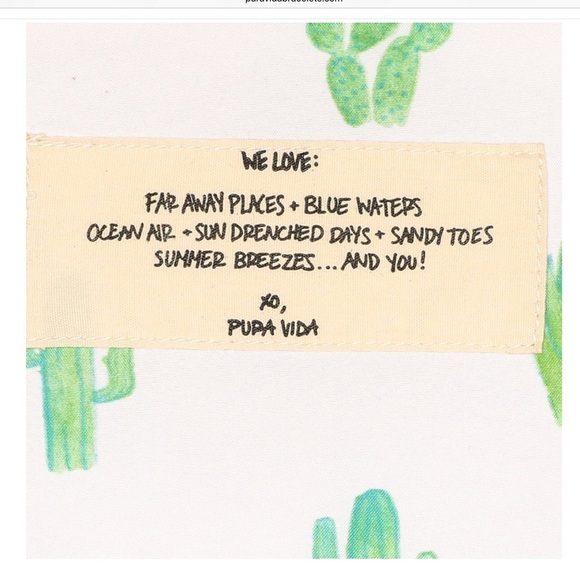 puravidabracelets.com
WE LOVE:
FAR AWAY PLACES + BLUE WATERS
OCEAN AIR + SUN DRENCHED DAYS + SANDY TOES
SUMMER BREEZES...AND YOU!
XO,
PURA VIDA